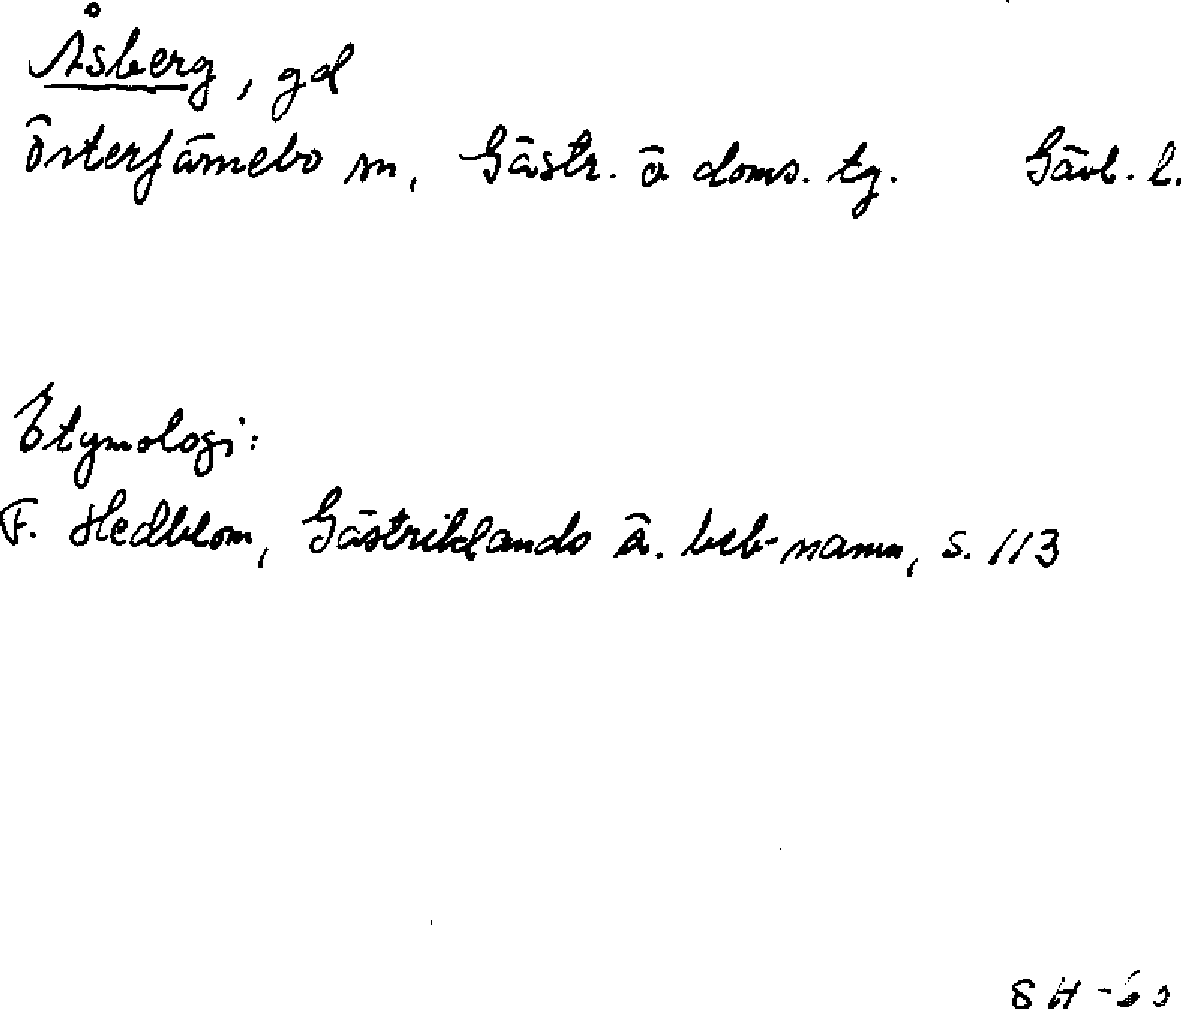 Åsberg, gd
Österfärnebo sn, Gästr. ö doms. tg. Gävl. l.
Etymologi:
F. Hedblom, Gästriklands ä. beb-namn, s. 113
SH-60